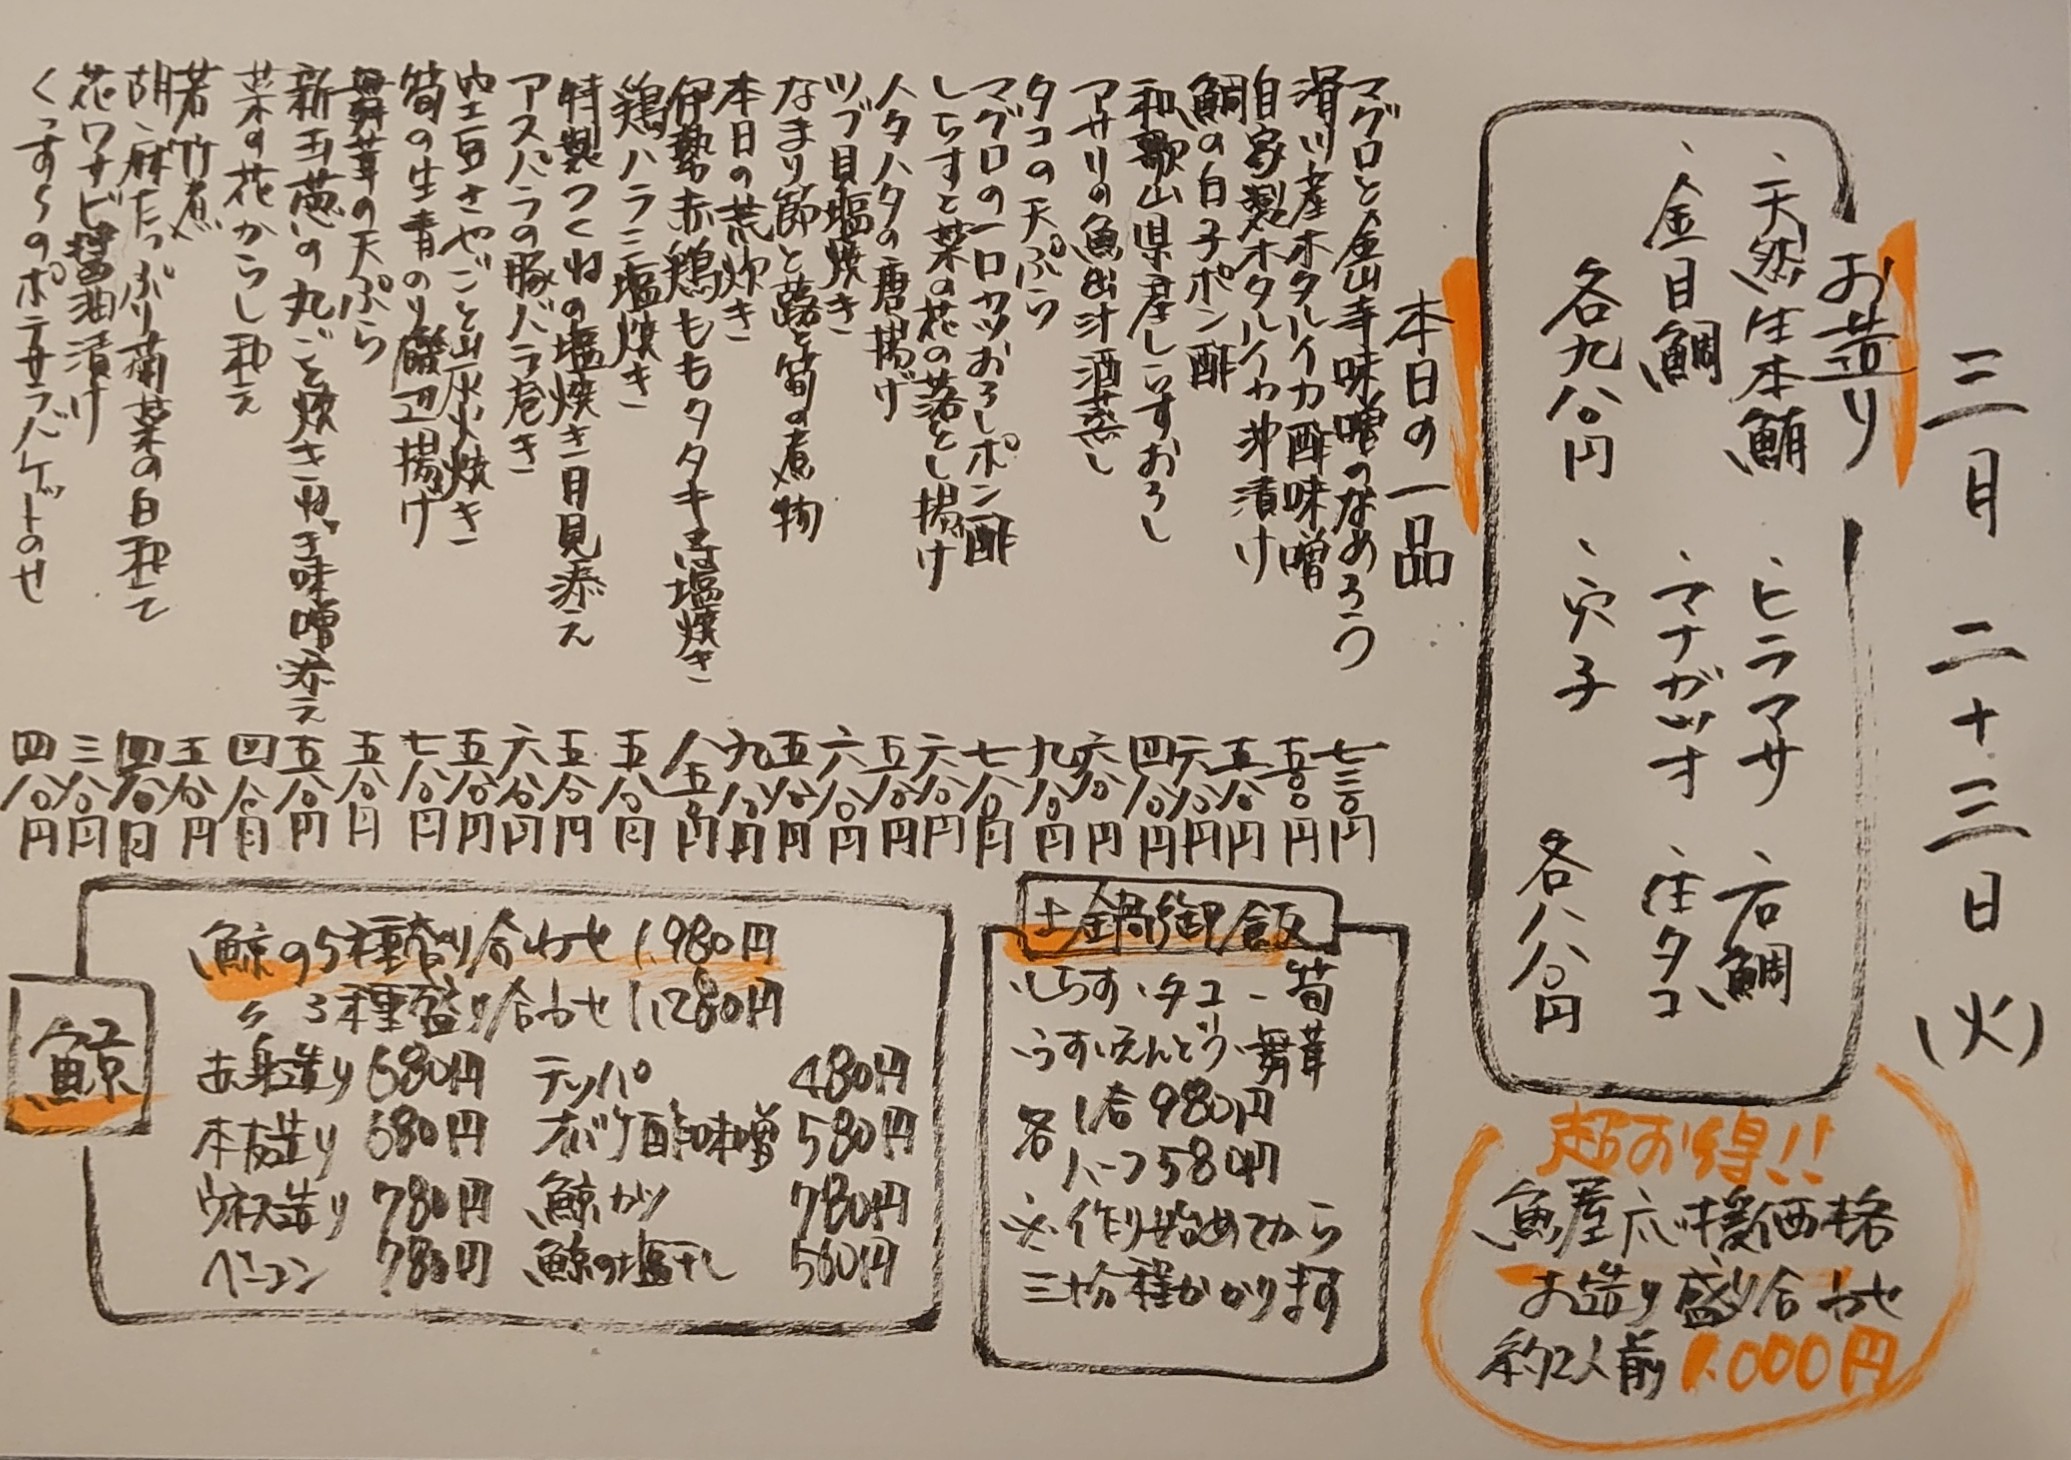 三月二十三日(火)
お造り
、天然生本鮪
、ヒラマサ
、石鯛
、金目鯛
、マナガツオ
、生タコ
各九八〇円
、穴子
各八八〇円
超お得!!
魚屋応援価格
お造り盛り合わせ
約2人前 1,000円
本日の一品
マグロと金山寺味噌のなめろう 七三〇円
滑川産ホタルイカ酢味噌 五〇〇円
自家製ホタルイカ沖漬け 五八〇円
鯛の白子ポン酢 六八〇円
和歌山県産しらすおろし 四八〇円
アサリの魚出汁酒蒸し 六八〇円
タコの天ぷら 九八〇円
マグロの一口カツおろしポン酢 七八〇円
しらすと菜の花の落とし揚げ 六八〇円
メタハタの唐揚げ 五八〇円
ツブ貝塩焼き 六八〇円
なまり節と蕗と筍の煮物 五八〇円
本日の荒炊き 九八〇円
伊勢赤鶏ももタタキ又は塩焼き 八五〇円
鶏ハラミ塩焼き 五八〇円
特製つくねの塩焼き月見添え 五八〇円
アスパラの豚バラ巻き 六八〇円
空豆さやごと山灰火焼き 五八〇円
筍の生青のり磯辺揚げ 七八〇円
舞茸の天ぷら 五八〇円
新玉葱の丸ごと焼きねぎ味噌添え 五八〇円
菜の花からし和え 四八〇円
若竹煮 五八〇円
胡麻たっぷり菊菜の白和え 四八〇円
花ワサビ醤油漬け 三八〇円
くっすらのポテサラバゲットのせ 四八〇円
土鍋御飯
、しらす、タコ、筍
、うすいえんどう、舞茸
各 1合 980円
ハーフ 580円
※作り始めてから
三十分程かかります
鯨
、鯨の5種盛り合わせ 1,980円
〃 3種盛り合わせ 1,280円
赤身造り 680円 テッパ 480円
本皮造り 680円 オバケ酢味噌 580円
ウネス造り 780円 鯨カツ 780円
ベーコン 780円 鯨の塩干し 560円